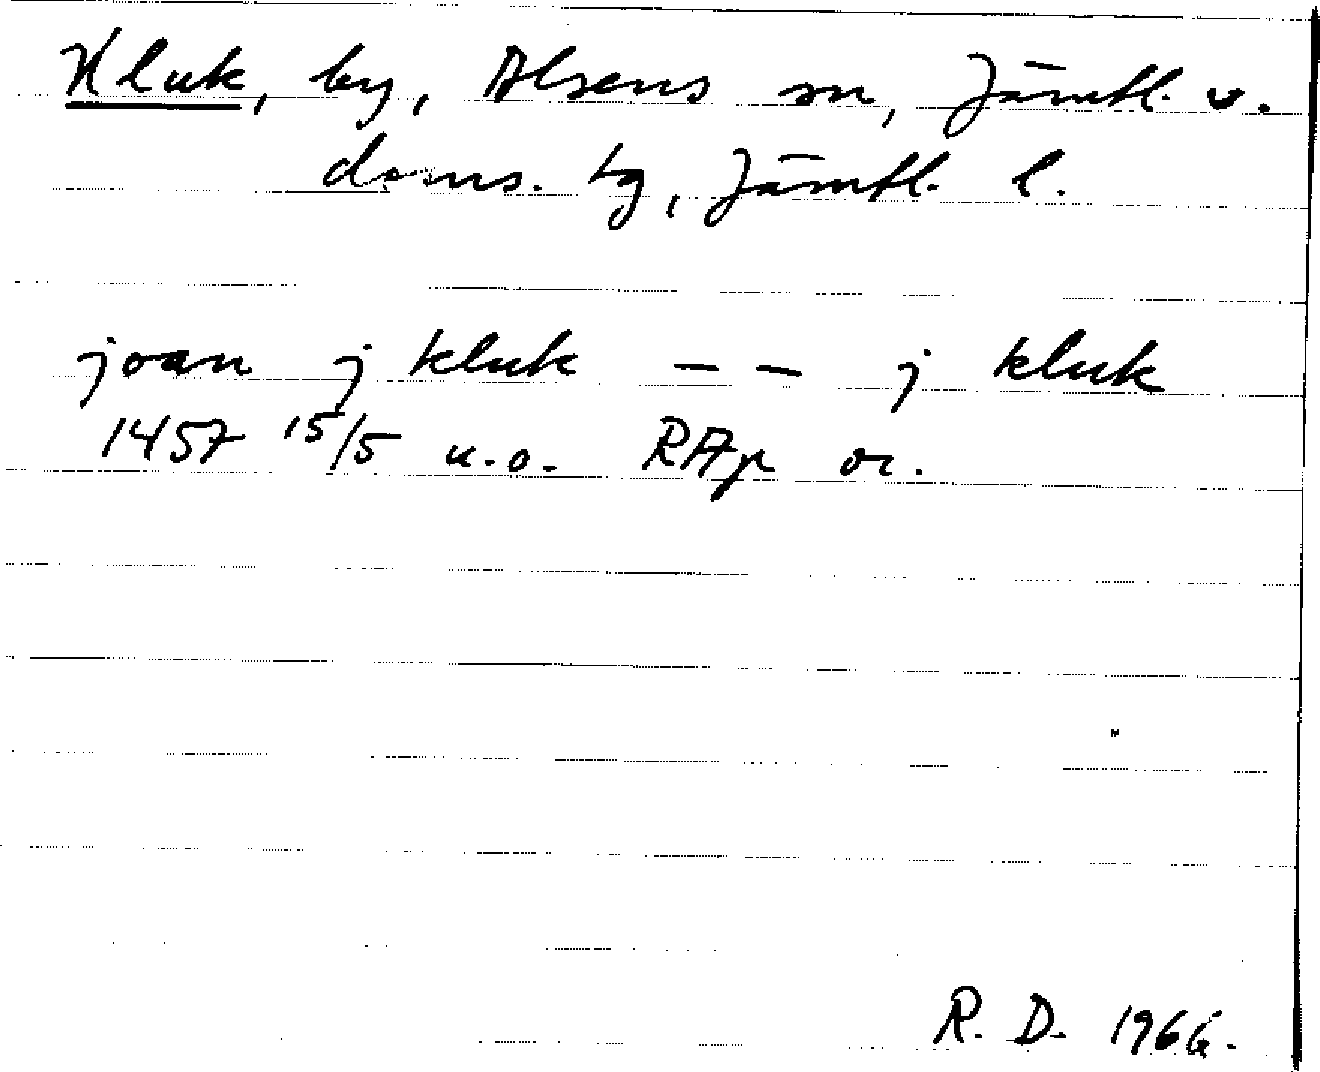 Kluk, by, Alsens sn, Jämtl. v.
doms. tg, Jämtl. l.
joan j kluk – – j kluk
1457 15/5 u.o. RAp or.
R. D. 1966.